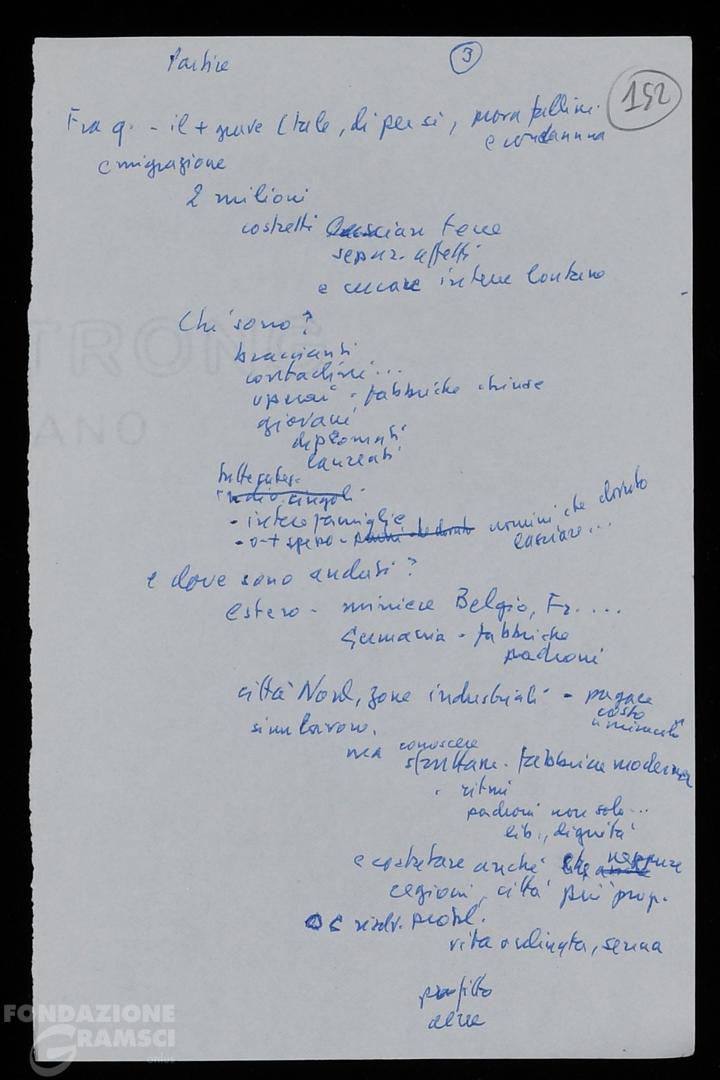 Partire
3
152
Fra q. - il + grave (tale, di per sé, mora fallim.
e condanna
emigrazione
2 milioni
costretti lasciare terre
separ. affetti
e cercare intere lontano
Chi sono?
braccianti
contadini...
operai - fabbriche chiuse
giovani
diplomati
laureati
indiv. singoli
- intere famiglie
- o + spesso - uomini che dovuto
lasciare...
e dove sono andati?
estero - miniere Belgio, Fr....
Germania - fabbriche
padroni
città Nord, zone industriali - pagare
costo
"miracolo"
sinu lavoro.
ma conoscere
sfruttam. fabbrica moderna
ritmi
padroni non solo...
lib., dignità
e constatare anche neppure
regioni, città più prog.
è risolv. probl.
vita ordinata, serena
profitto
aree
TRONG
ANO
FONDAZIONE
GRAMSCI
onlus